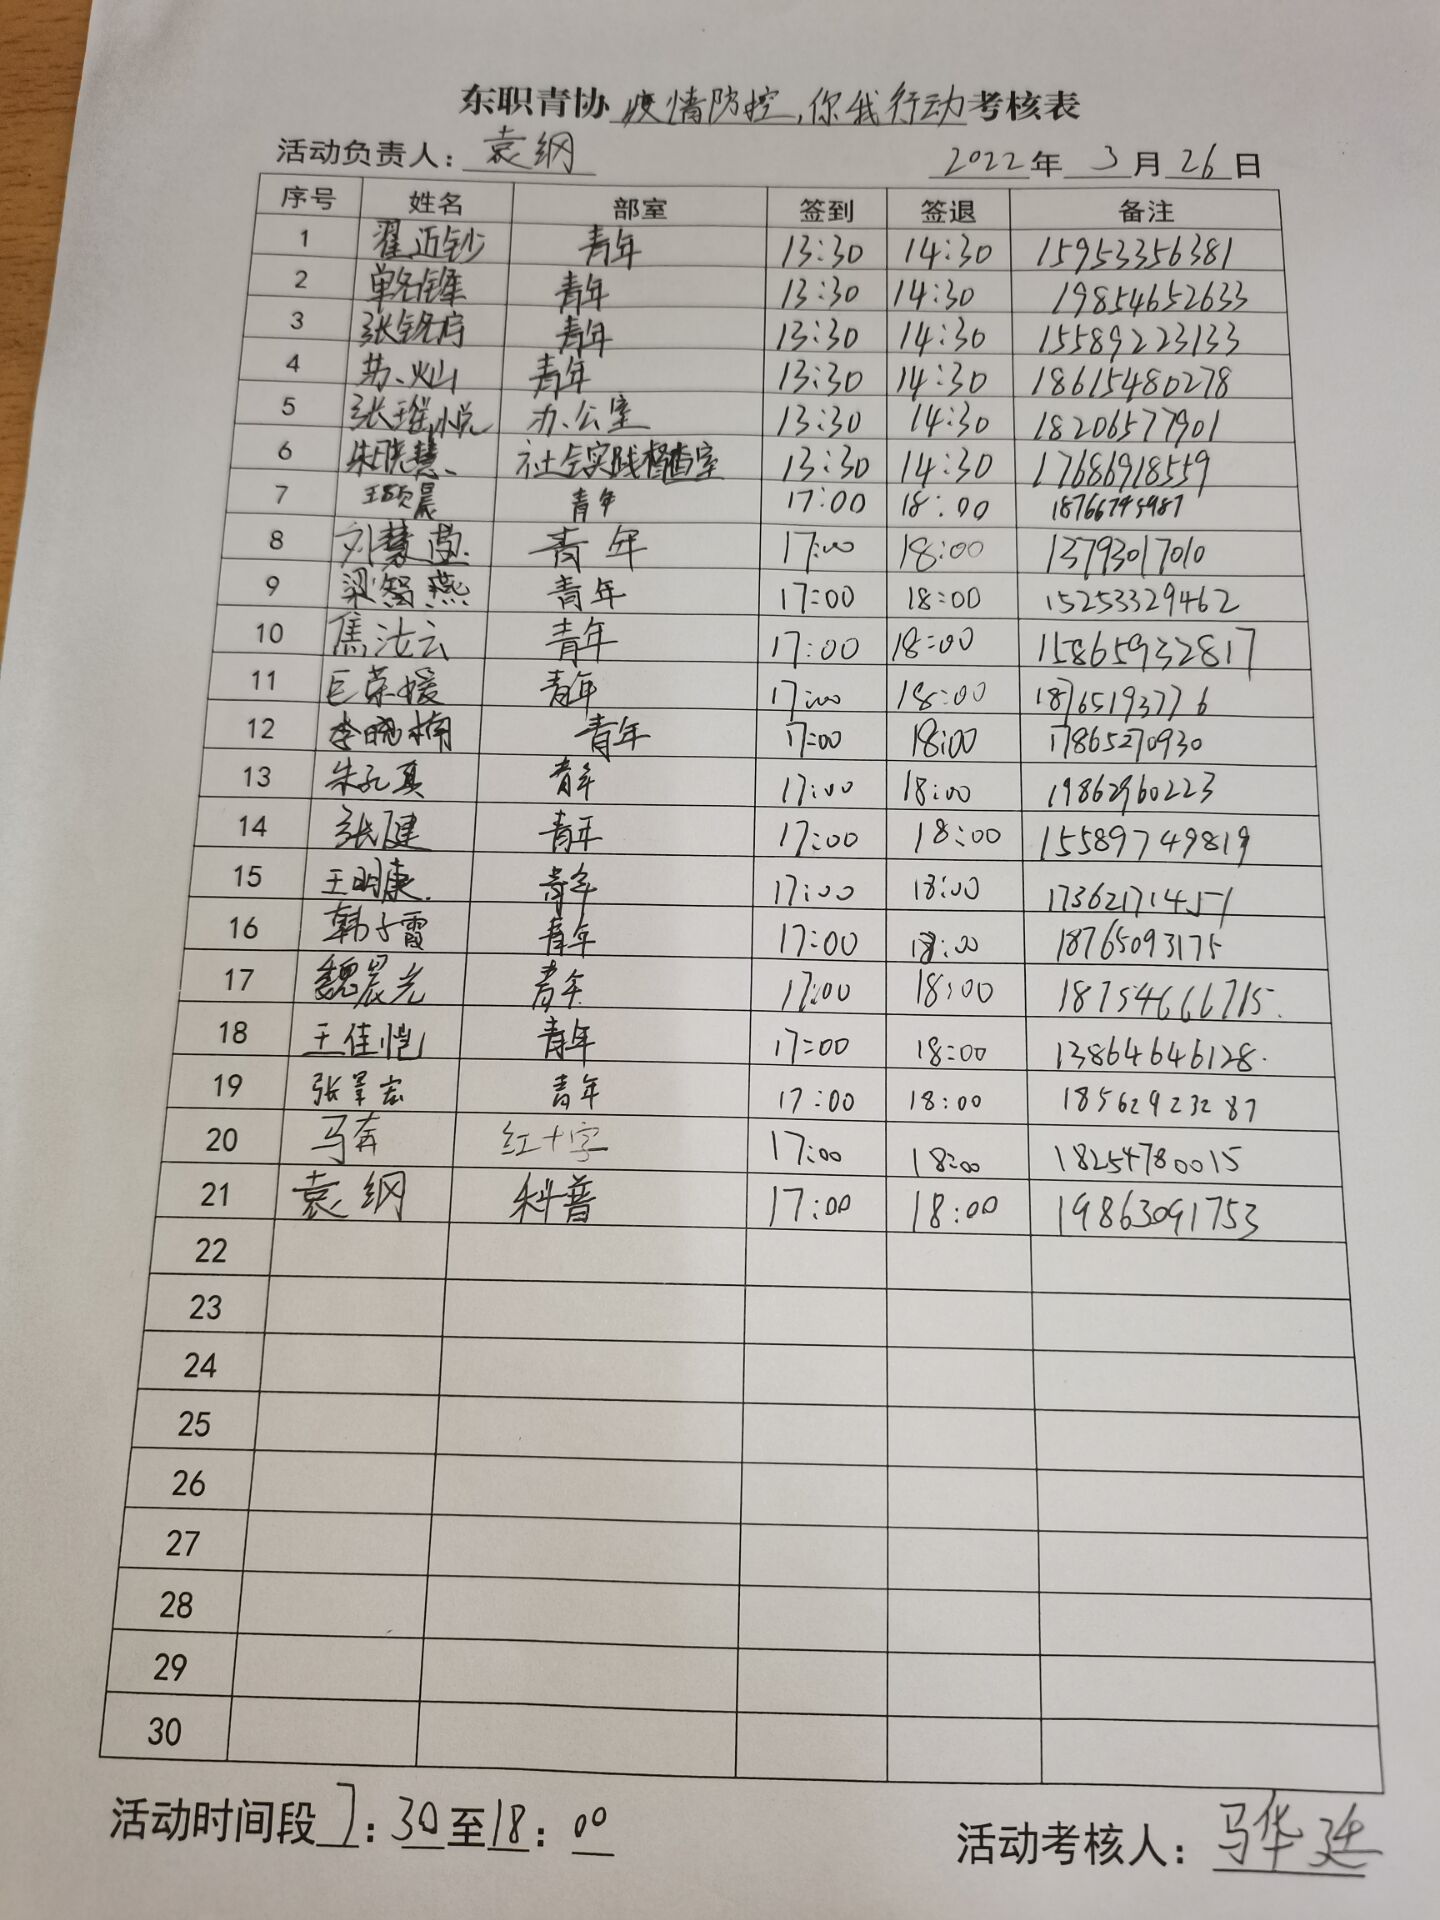 东职青协 疫情防控,你我行动 考核表
活动负责人: 袁纲 2022年 3月26日
序号 姓名 部室 签到 签退 备注
1 翟近钞 青年 13:30 14:30 15953356381
2 单名锋 青年 13:30 14:30 19854652633
3 张铭宇 青年 13:30 14:30 15589223133
4 苏灿 青年 13:30 14:30 18615480278
5 张璀悦 办公室 13:30 14:30 18206577901
6 朱晓慧 社会实践稽查室 13:30 14:30 17686918559
7 王颐晨 青年 17:00 18:00 18766795987
8 刘慧 青年 17:00 18:00 13793017010
9 梁智燕 青年 17:00 18:00 15253329462
10 焦汝云 青年 17:00 18:00 15865932817
11 巨荣媛 青年 17:00 18:00 18765193776
12 李晓楠 青年 17:00 18:00 17865270930
13 朱孔真 青年 17:00 18:00 19862960223
14 张健 青年 17:00 18:00 15589749819
15 王明康 青年 17:00 18:00 17362171451
16 韩子霞 青年 17:00 18:00 18765093175
17 魏晨光 青年 17:00 18:00 18754666715
18 王佳恺 青年 17:00 18:00 13864646128
19 张宏 青年 17:00 18:00 18562923287
20 马奔 红十字 17:00 18:00 18254780015
21 袁纲 科普 17:00 18:00 19863091753
22
23
24
25
26
27
28
29
30
活动时间段 7:30至18:00 活动考核人: 马华廷